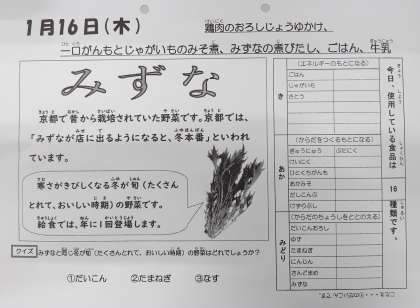 1月16日(木)
鶏肉のおろしじょうゆかけ、
一口がんもとじゃがいものみそ煮、みずなの煮びたし、ごはん、牛乳
みずな
京都で昔から栽培されていた野菜です。京都では、
「みずなが店に出るようになると、冬本番」といわれ
ています。
寒さがきびしくなる冬が旬(たくさん
とれて、おいしい時期)の野菜です。
給食では、年に1回登場します。
クイズ
みずなと同じ冬が旬(たくさんとれて、おいしい時期)の野菜はどれでしょうか?
①だいこん ②たまねぎ ③なす
き
(エネルギーのもとになる)
ごはん
じゃがいも
さとう
あか
(からだをつくるもとになる)
ぎゅうにゅう ぶたにく
けいにく
ひとくちがんも
あかみそ
だしこんぶ
けずりぶし
みどり
(からだのちょうしをととのえる)
だいこんおろし
ゆず
たまねぎ
にんじん
さんどまめ
みずな
今日、使用している食品は
16
種類です。